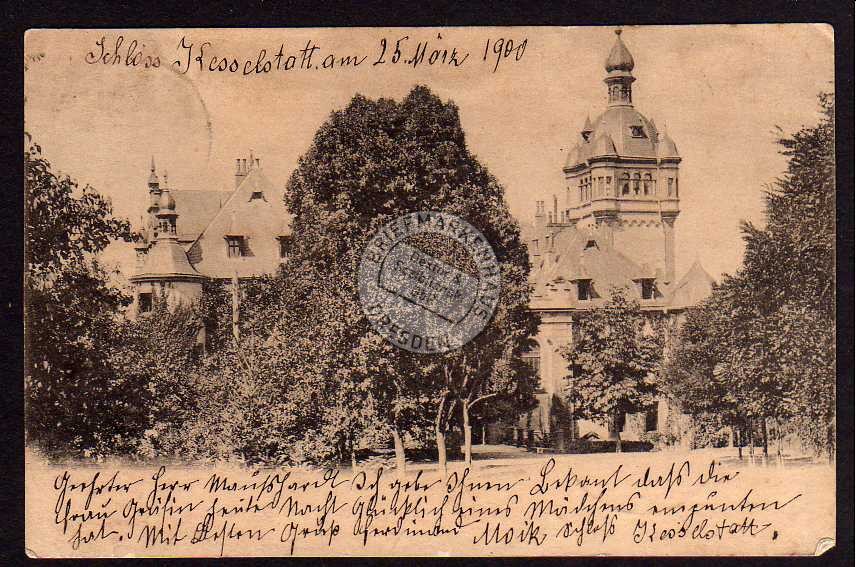 Schloss Kesselstatt. am 25. März 1900
BRIEFMARKENHAUS
DRESDEN
Geehrter Herr Maußhardt Ich gebe Ihnen Bekant daß die
frau Gräfin heute Nacht Glücklich eines Mädchens empunten
hat. Mit besten Gruß Ferdinand Moik Schloß Kesselstatt.